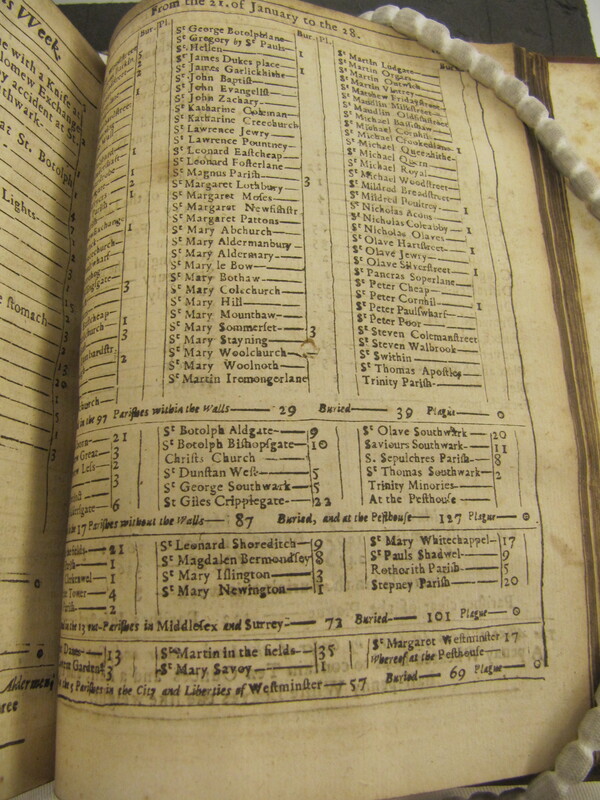 is Week.
e with a Knife at
lomew Exchange
y accident at St.
thwark-
at St. Botolph
Lights-
e stomach
Aldermen
From the 21. of January to the 28.
Bur. Pl.
St George Botolphlane
St Gregory by St Pauls
St Hellen 1
St James Dukes place
St James Garlickhithe 1
St John Baptist
St John Evangelist
St John Zachary
St Katharine Coleman
St Katharine Creechurch
St Lawrence Jewry
St Lawrence Pountney
St Leonard Eastcheap 1
St Leonard Fosterlane
St Magnus Parish
St Margaret Lothbury 3
St Margaret Moses 1
St Margaret Newfishstr
St Margaret Pattons
St Mary Abchurch
St Mary Aldermanbury
St Mary Aldermary
St Mary le Bow
St Mary Bothaw
St Mary Colechurch
St Mary Hill
St Mary Mounthaw
St Mary Sommerset 3
St Mary Stayning
St Mary Woolchurch
St Mary Woolnoth
St Martin Iremongerlane
St Martin Ludgate
St Martin Orgars
St Martin Outwich
St Martin Vintrey
St Matthew Fridaystreet
St Maudlin Milkstreet
St Maudlin Oldfishstreet
St Michael Bassishaw
St Michael Cornhil
St Michael Crookedlane
St Michael Queenhithe 1
St Michael Quern
St Michael Royal
St Michael Woodstreet
St Mildred Breadstreet
St Mildred Poultrey
St Nicholas Acons 1
St Nicholas Coleabby
St Nicholas Olaves 1
St Olave Hartstreet
St Olave Jewry 1
St Olave Silverstreet
St Pancras Soperlane 1
St Peter Cheap
St Peter Cornhil
St Peter Paulswharf 1
St Peter Poor
St Steven Colemanstreet
St Steven Walbrook
St Swithin
St Thomas Apostles
Trinity Parish
in the 97 Parishes within the Walls 29 Buried 39 Plague 0
21
Great 3
Less 2
3
6
St Botolph Aldgate 9
St Botolph Bishopsgate 10
Christs Church
St Dunstan West 5
St George Southwark 5
St Giles Cripplegate 22
St Olave Southwark 20
Saviours Southwark 11
S. Sepulchres Parish 8
St Thomas Southwark 2
Trinity Minories
At the Pesthouse
17 Parishes without the Walls 87 Buried, and at the Pesthouse 127 Plague 0
21
1
1
Tower 4
2
St Leonard Shoreditch 9
St Magdalen Bermondsey 8
St Mary Islington 3
St Mary Newington 1
St Mary Whitechappel 17
St Pauls Shadwel 9
Rothorith Parish 5
Stepney Parish 20
in the 13 out-Parishes in Middlesex and Surrey 72 Buried 101 Plague 0
Danes 13
Garden 3
St Martin in the fields 35
St Mary Savoy 1
St Margaret Westminster 17
Whereof at the Pesthouse
the 5 Parishes in the City and Liberties of Westminster 57 Buried 69 Plague 0